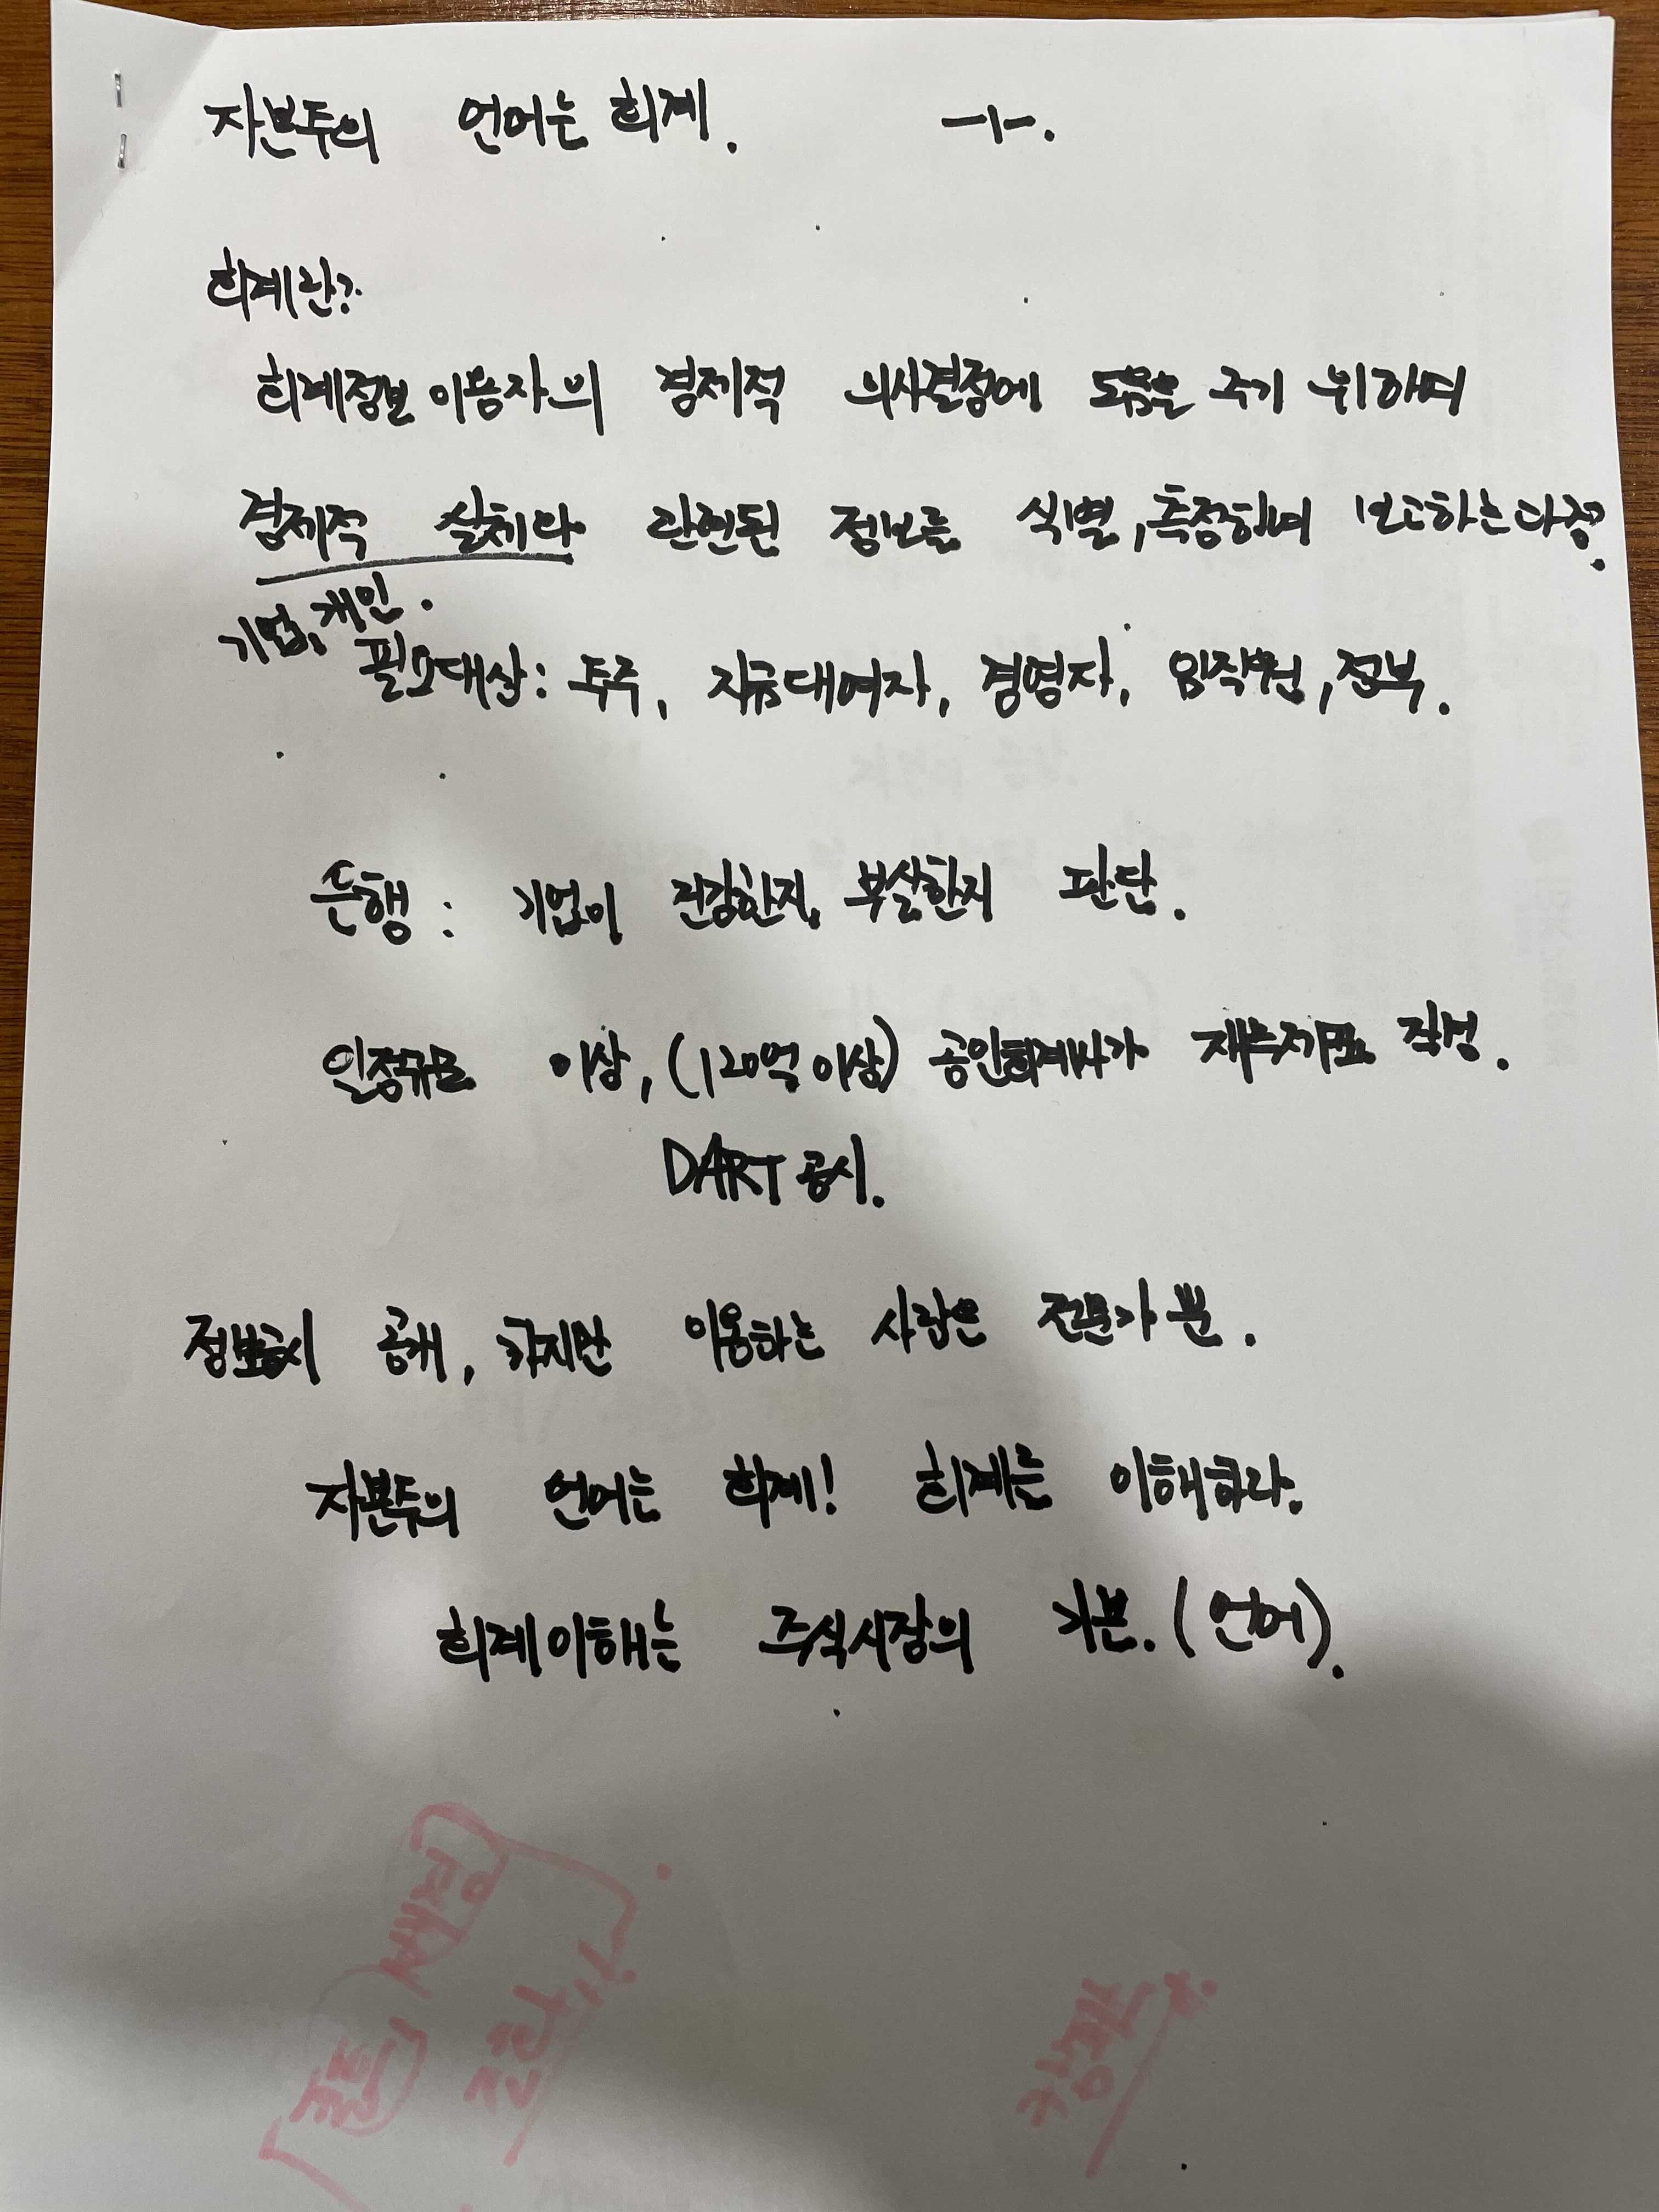 자본주의 언어는 회계. -1-.
회계란?
회계정보 이용자의 경제적 의사결정에 도움을 주기 위하여
경제적 실체와 관련된 정보를 식별, 측정하여 보고하는 과정.
기업, 개인.
필요대상: 주주, 자금대여자, 경영자, 임직원, 정부.
은행: 기업이 건강한지, 부실한지 판단.
일정규모 이상, (120억 이상) 공인회계사가 재무제표 작성.
DART 공시.
정보공시 공개, 하지만 이용하는 사람은 전문가 뿐.
자본주의 언어는 회계! 회계는 이해하라.
회계이해는 주식시장의 기본. (언어).